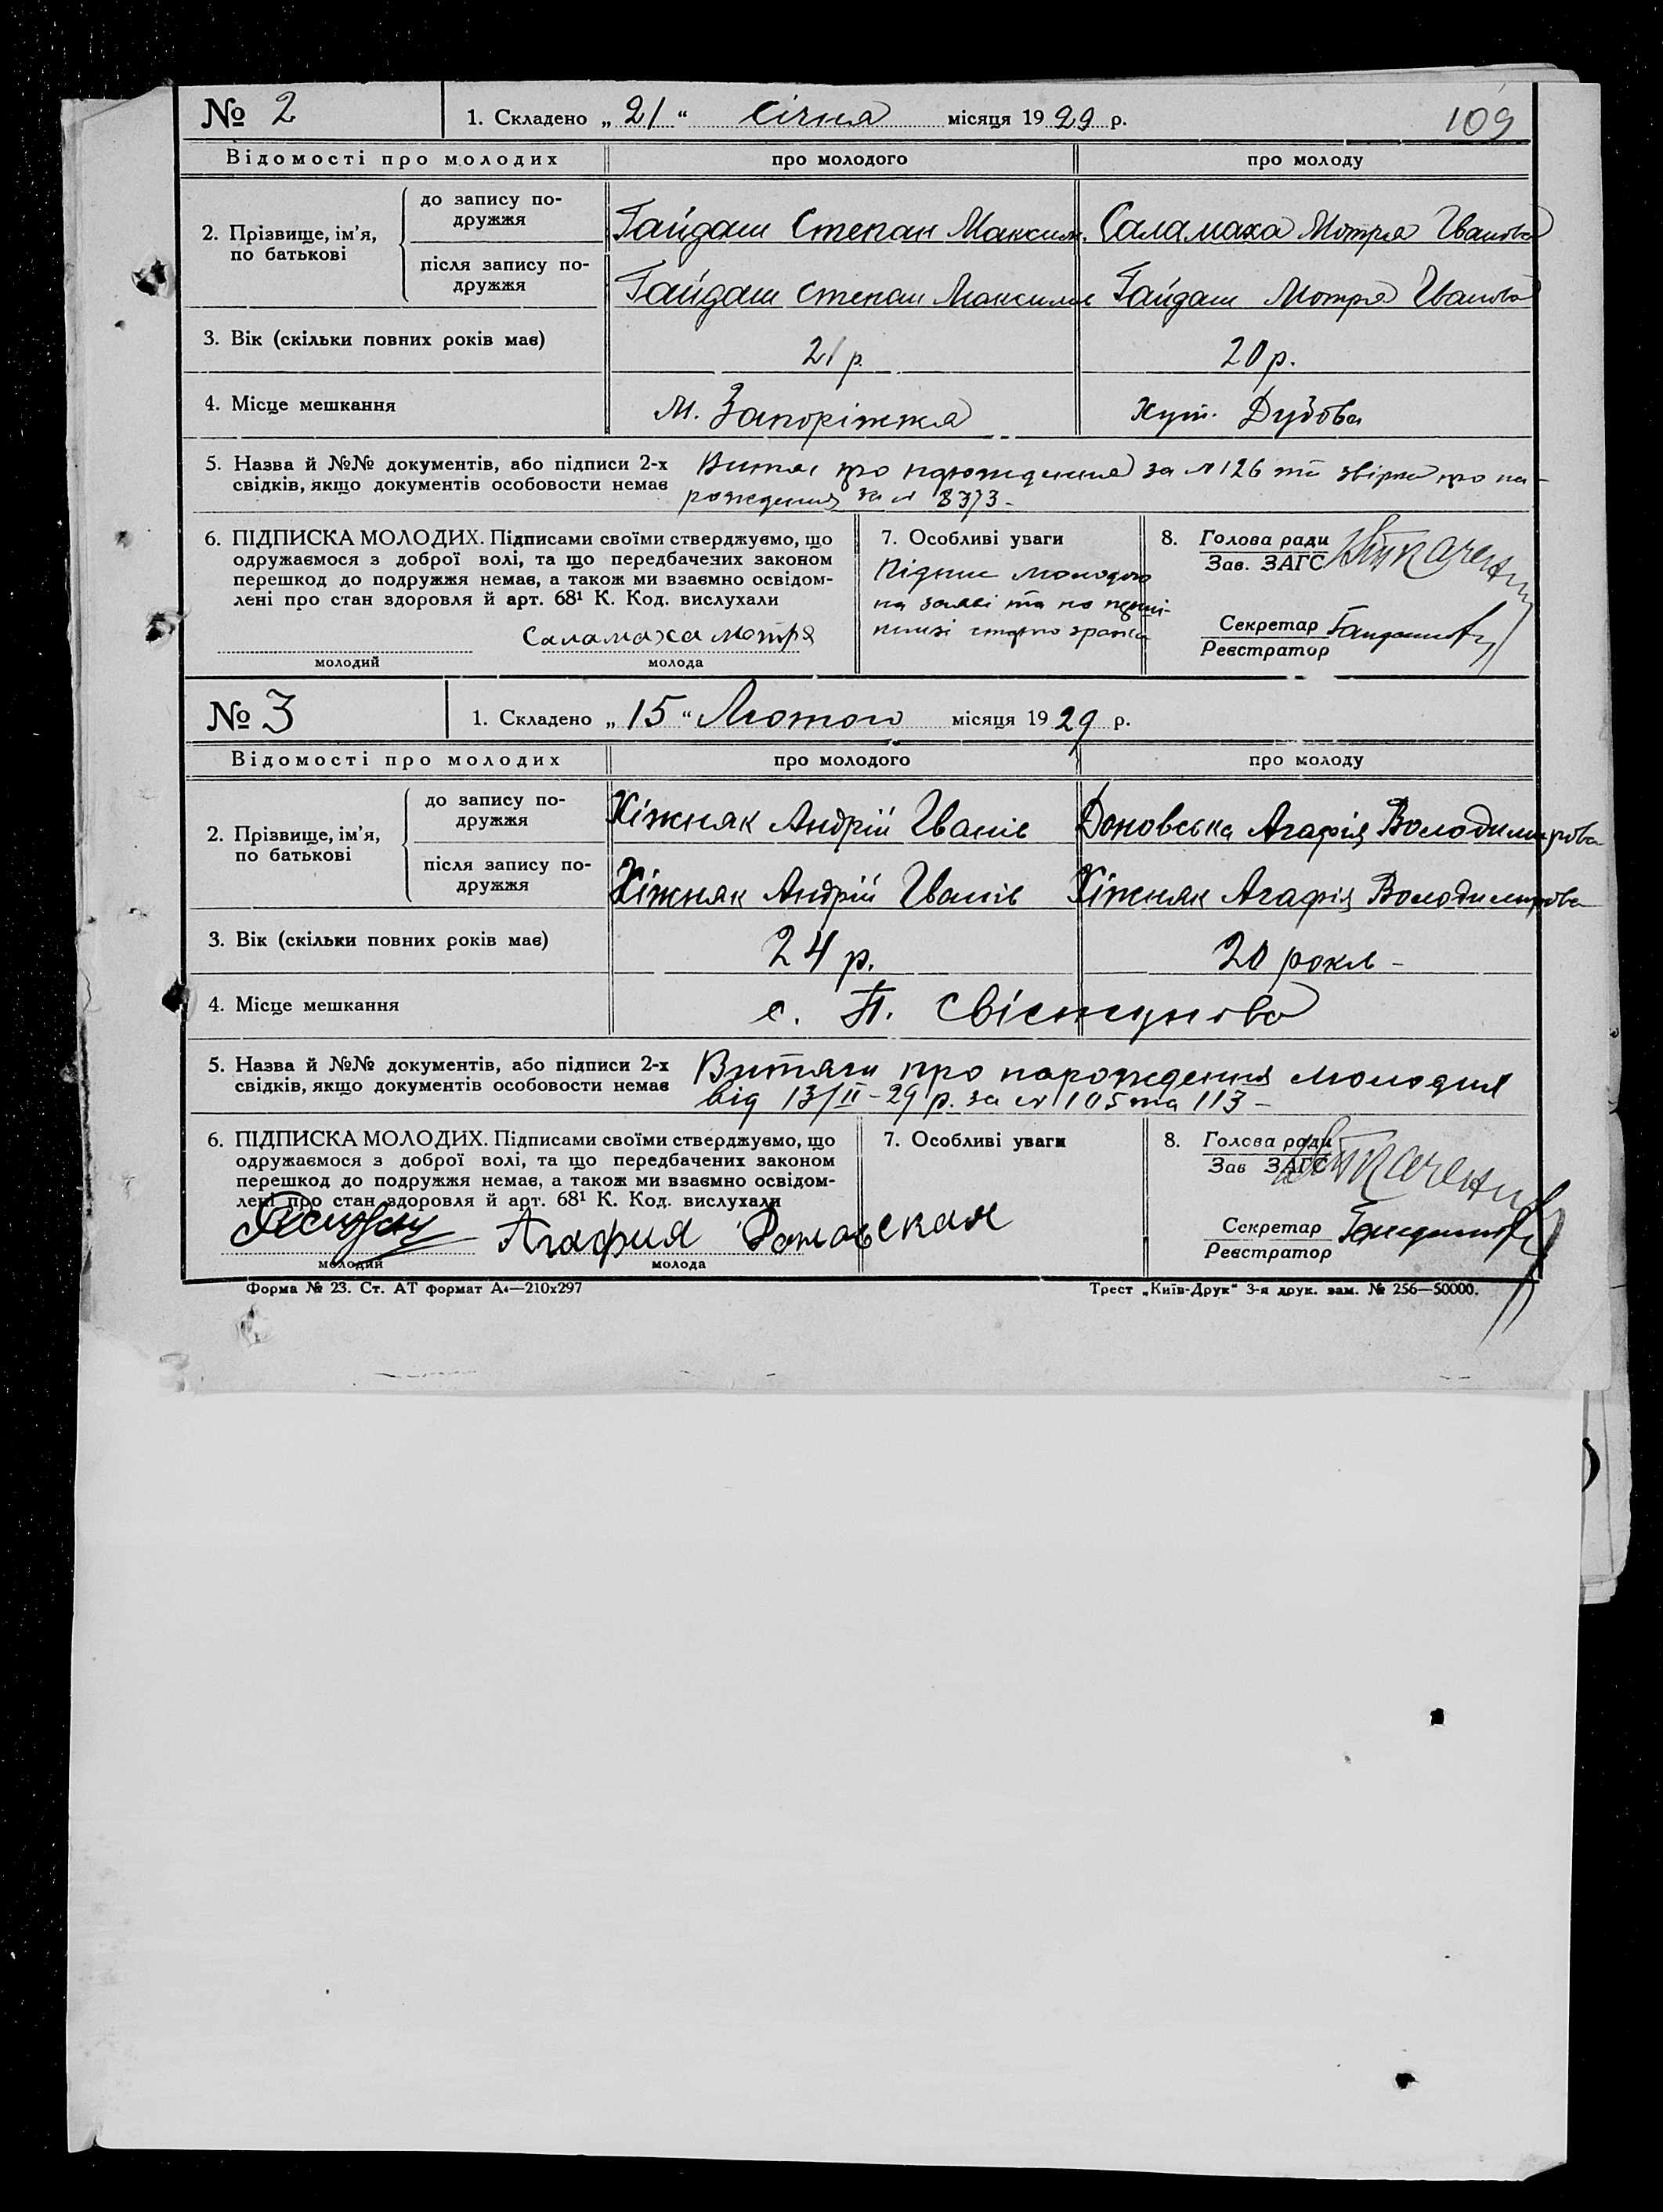 № 2 1. Складено „21“ Січня місяця 1929 р. 109
Відомості про молодих про молодого про молоду
2. Прізвище, ім’я, по батькові
до запису подружжя Гайдаш Степан Максим. Саламаха Мотря Іванова
після запису подружжя Гайдаш Степан Максимов Гайдаш Мотря Іванова
3. Вік (скільки повних років має) 21 р. 20 р.
4. Місце мешкання м. Запоріжжя Хут. Дубова
5. Назва й №№ документів, або підписи 2-х Витяг про народження за № 126 та звірка про на-
свідків, якщо документів особовости немає рождення за № 8373 -
6. ПІДПИСКА МОЛОДИХ. Підписами своїми стверджуємо, що
одружаємося з доброї волі, та що передбачених законом
перешкод до подружжя немає, а також ми взаємно освідом-
лені про стан здоровля й арт. 68¹ К. Код. вислухали
Саламаха мотря
молодий молода
7. Особливі уваги
Підпис молодого
на заяві та на
8. Голова ради
Зав. ЗАГС
Секретар
Реєстратор
№ 3 1. Складено „15“ Лютого місяця 1929 р.
Відомості про молодих про молодого про молоду
2. Прізвище, ім’я, по батькові
до запису подружжя Хіжняк Андрій Іванів Доновська Агафія Володимирова
після запису подружжя Хіжняк Андрій Іванів Хіжняк Агафія Володимирова
3. Вік (скільки повних років має) 24 р. 20 років -
4. Місце мешкання с. П. Свістуново
5. Назва й №№ документів, або підписи 2-х Витяги про народження молодих
свідків, якщо документів особовости немає від 13/II - 29 р. за № 105 та 113 -
6. ПІДПИСКА МОЛОДИХ. Підписами своїми стверджуємо, що
одружаємося з доброї волі, та що передбачених законом
перешкод до подружжя немає, а також ми взаємно освідом-
лені про стан здоровля й арт. 68¹ К. Код. вислухали
Агафия Доновская
молодий молода
7. Особливі уваги
8. Голова ради
Зав ЗАГС
Секретар
Реєстратор
Форма № 23. Ст. АТ формат А₄—210х297 Трест „Київ-Друк“ 3-я друк. зам. № 256—50000.